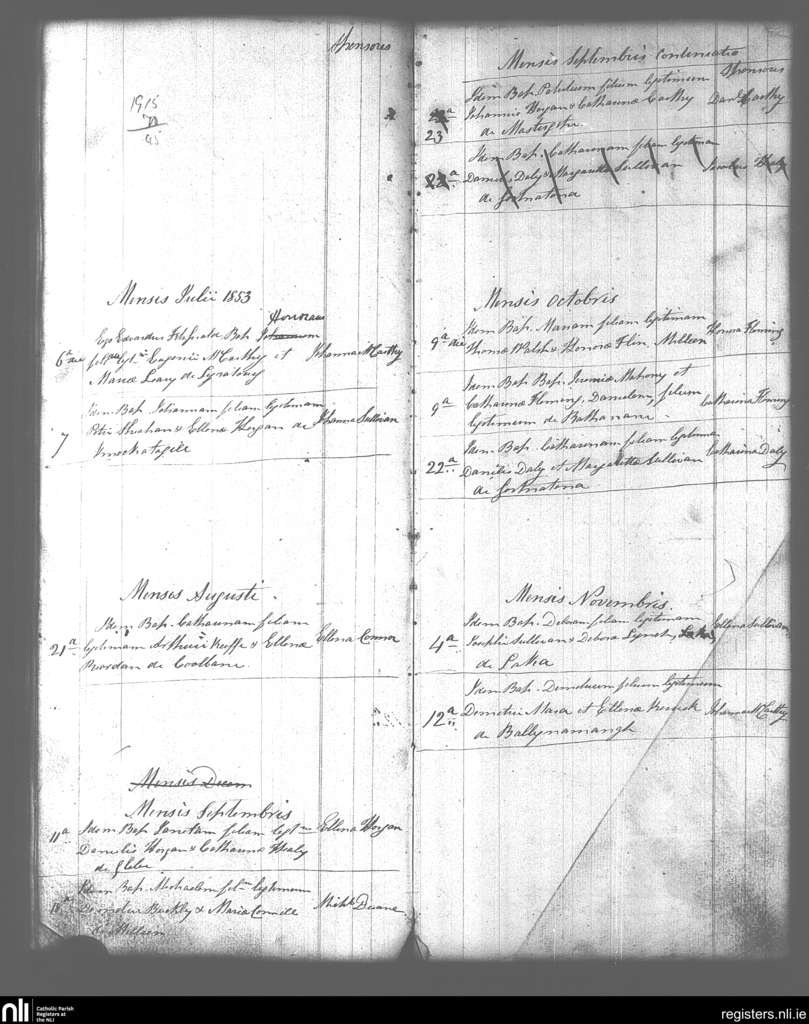 Sponsores
1915
70
45
Mensis Julii 1853
Honoram
Ego Edvardus Bap. Johannam
6a die filiam lgt. Eugenii McCarthy et Johanna McCarthy
Mariæ Leary de
Idem Bap. Johannam filiam legitimam
7 Petri Sheahan & Ellenæ Horgan de Johanna Sullivan
Mensis Augusti
Idem Bap. Catharinam filiam
21a legitimam Arthuri Keeffe & Ellenæ Ellena Connor
Reordan de Coolbane
Mensis Decem
Mensis Septembris
11a Idem Bap. filiam legt. Ellena Horgan
Danielis Horgan & Catharinæ Healy
de Glebe
Idem Bap. Michaelem fil. legitimum
18a Buckley & Maria Connell Michl. Duane
de Milleen
Mensis Septembris Continuatio
Idem Bap. filium legitimum Sponsores
23a Johannis Horgan & Catharinæ Carthy Danl. Carthy
23 de
Idem Bap. Catharinam filiam legitimam
22a Danielis Daly & Margarittæ Sullivan
de Gortnatona
Mensis Octobris
9a die Idem Bap. Mariam filiam legitimam Honora Fleming
Thomæ Walsh & Honoræ Flin, Milleen
Idem Bap. Bap. Jeremiæ Mahony et
9a Catharinæ Fleming, Danielem, filium Catharina Fleming
legitimum de Rathanane.
Idem Bap. Catharinam filiam legitimam
22a Danielis Daly et Margarittæ Sullivan Catharina Daly
de Gortnatona
Mensis Novembris
Idem Bap. Deboram filiam legitimam Ellena Sullivan
4a Josephi Sullivan & Debora Lynch, Laka
de Laka
Idem Bap. filium legitimum
12a Demetrii Mara et Ellenæ Johanna McCarthy
de Ballynamaugh
nli Catholic Parish
Registers at
the NLI
registers.nli.ie